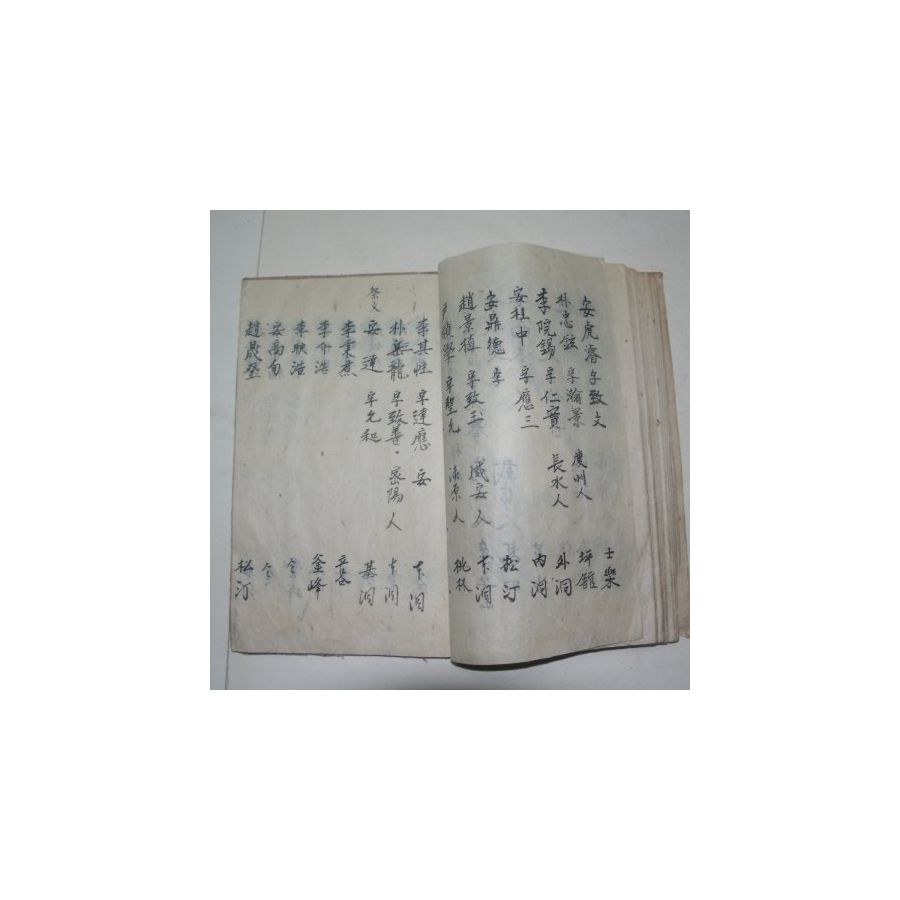 安虎濬 字致文 士樂
朴忠鉉 字瀚景 慶州人 坪雖
李院錫 字仁賓 長水人 外洞
安柱中 字應三 內洞
安鼎德 字 松汀
趙景植 字致玉 咸安人 下洞
尹 學 字聖允 漆原人 桃林
李其性 字達應 安 下洞
朴 龍 字致善 密陽人 下洞
祭文
安達 字允和 基洞
李秉熹 立谷
李介浩 釜峰
李映浩 仝
安禹 仝
趙晟 松汀